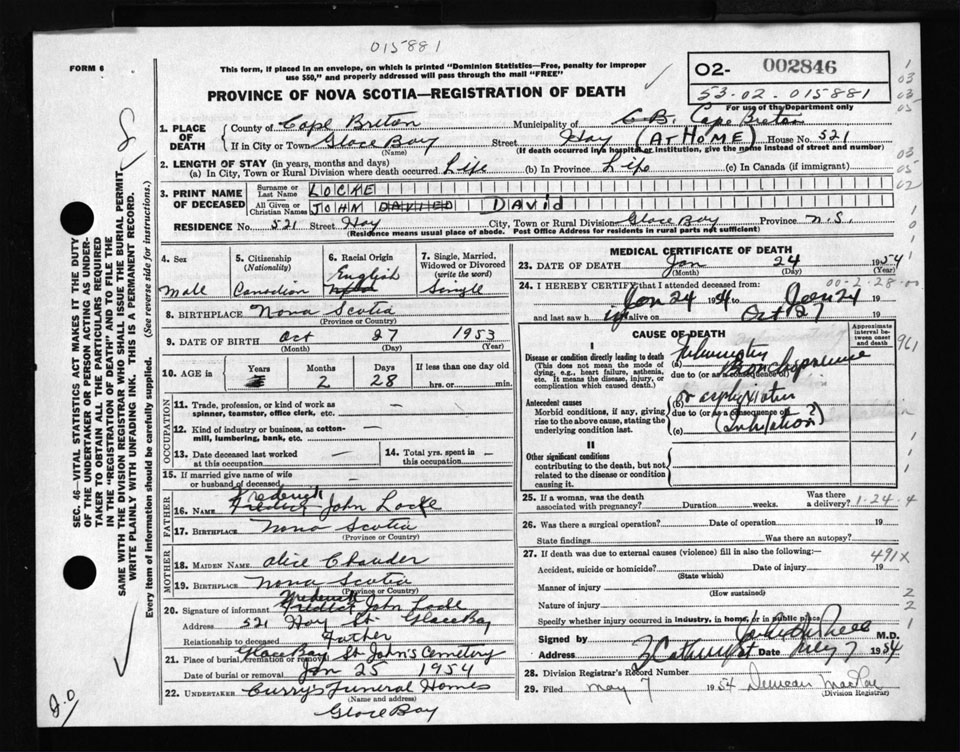 015881
FORM 6
This form, if placed in an envelope, on which is printed "Dominion Statistics—Free, penalty for improper
use $50," and properly addressed will pass through the mail "FREE"
02- 002846
53-02-015881
For use of the Department only
PROVINCE OF NOVA SCOTIA—REGISTRATION OF DEATH
1. PLACE OF DEATH
County of Cape Breton Municipality of C.B. Cape Breton
If in City or Town Glace Bay Street Hay (AT HOME) House No. 521
(Name) (If death occurred in a hospital or institution, give the name instead of street and number)
2. LENGTH OF STAY (in years, months and days)
(a) In City, Town or Rural Division where death occurred Life (b) In Province Life (c) In Canada (if immigrant)
3. PRINT NAME OF DECEASED
Surname or Last Name LOCKE
All Given or Christian Names JOHN DAVIED David
RESIDENCE No. 521 Street Hay City, Town or Rural Division Glace Bay Province N.S.
(Residence means usual place of abode. Post Office Address for residents in rural parts not sufficient)
4. Sex Male
5. Citizenship (Nationality) Canadian
6. Racial Origin English
7. Single, Married, Widowed or Divorced (write the word) Single
8. BIRTHPLACE Nova Scotia
(Province or Country)
9. DATE OF BIRTH Oct 27 1953
(Month) (Day) (Year)
10. AGE in Years Months 2 Days 28 If less than one day old
hrs. or min.
OCCUPATION
11. Trade, profession, or kind of work as
spinner, teamster, office clerk, etc. —
12. Kind of industry or business, as cotton-
mill, lumbering, bank, etc. —
13. Date deceased last worked
at this occupation —
14. Total yrs. spent in
this occupation —
15. If married give name of wife
or husband of deceased
FATHER
16. NAME Frederick John Locke
17. BIRTHPLACE Nova Scotia
(Province or Country)
MOTHER
18. MAIDEN NAME Alice
19. BIRTHPLACE Nova Scotia
(Province or Country)
20. Signature of informant Frederick John Locke
Address 521 Hay St. Glace Bay
Relationship to deceased Father
21. Place of burial, cremation or removal Glace Bay St John's Cemetery
Date of burial or removal Jan 25 1954
22. UNDERTAKER Curry's Funeral Homes
(Name and address)
Glace Bay
MEDICAL CERTIFICATE OF DEATH
23. DATE OF DEATH Jan 24 1954
(Month) (Day) (Year)
00-2-28-00
24. I HEREBY CERTIFY that I attended deceased from:
Jan 24 1954 to Jan 24 19
and last saw h alive on Oct 27 19
CAUSE OF DEATH
Approximate interval between onset and death
I
Disease or condition directly leading to death
(This does not mean the mode of
dying, e.g., heart failure, asthenia,
etc. It means the disease, injury, or
complication which caused death.)
(a) Bronchopneumonia
due to (or as a consequence of)
Antecedent causes
Morbid conditions, if any, giving
rise to the above cause, stating the
underlying condition last.
(b) or
due to (or as a consequence of) ?
(c)
II
Other significant conditions
contributing to the death, but not
related to the disease or condition
causing it.
25. If a woman, was the death
associated with pregnancy? Duration weeks. Was there
a delivery? 1-24-4
26. Was there a surgical operation? Date of operation 19
State findings Was there an autopsy?
27. If death was due to external causes (violence) fill in also the following:— 491X
Accident, suicide or homicide? Date of injury 19
(State which)
Manner of injury
(How sustained)
Nature of injury
Specify whether injury occurred in industry, in home, or in public place
Signed by M.D.
Address Date 7 1954
28. Division Registrar's Record Number
29. Filed May 7 1954 Duncan MacRae
(Division Registrar)
SEC. 46—VITAL STATISTICS ACT MAKES IT THE DUTY
OF THE UNDERTAKER OR PERSON ACTING AS UNDER-
TAKER TO OBTAIN ALL THE PARTICULARS REQUIRED
IN THE "REGISTRATION OF DEATH" AND TO FILE THE
SAME WITH THE DIVISION REGISTRAR WHO SHALL ISSUE THE BURIAL PERMIT.
WRITE PLAINLY WITH UNFADING INK. THIS IS A PERMANENT RECORD.
Every item of information should be carefully supplied. (See reverse side for instructions.)